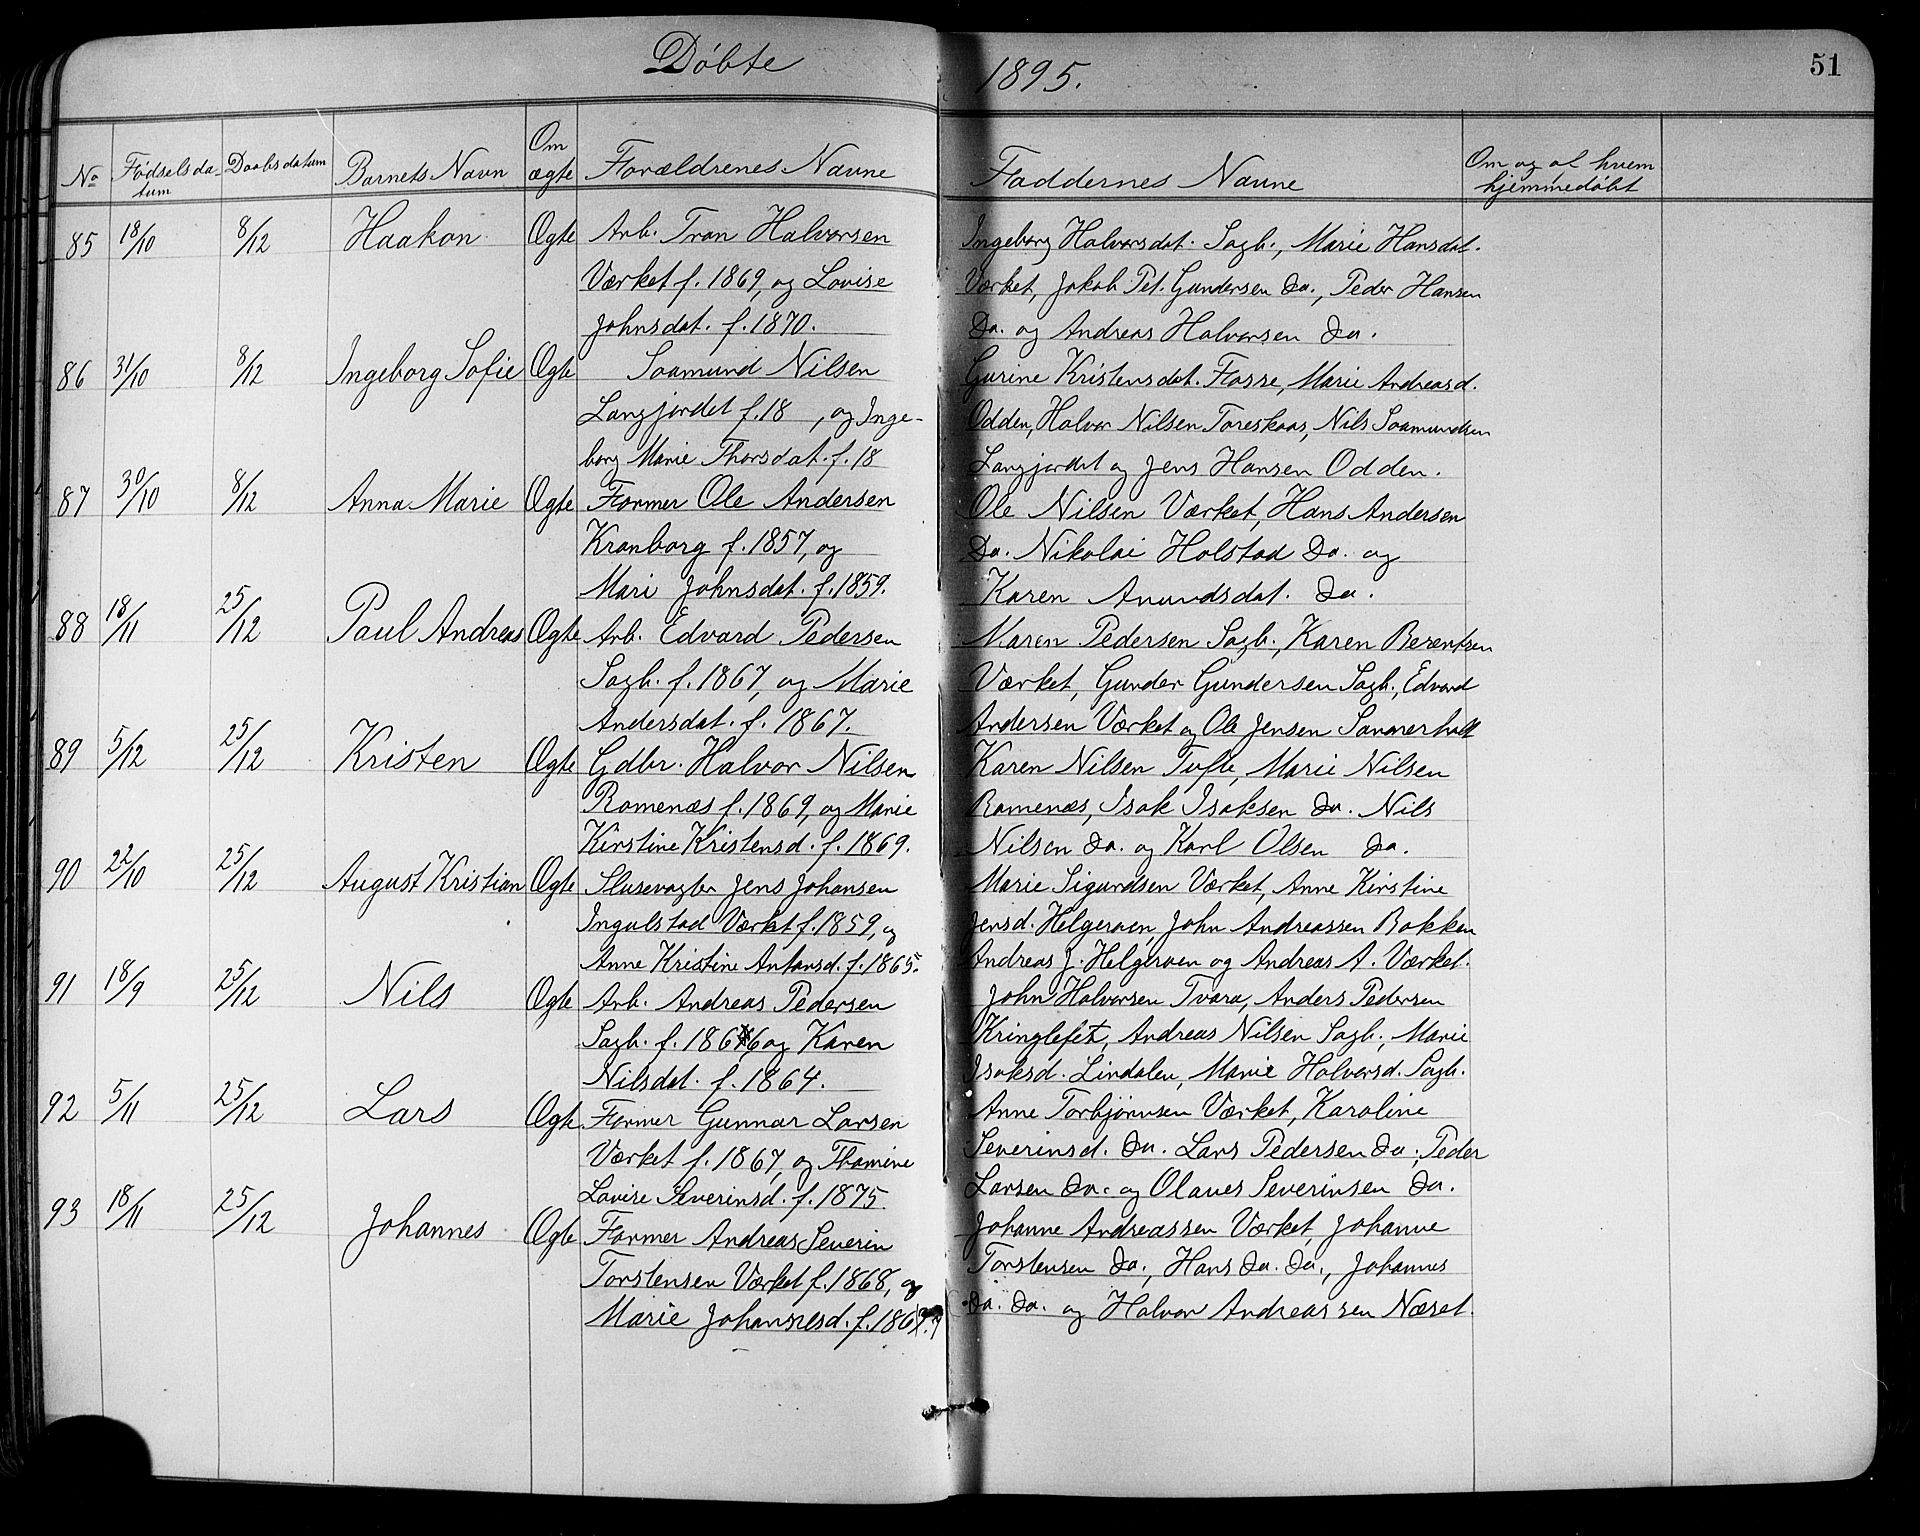 Døbte
1895.
51
No Fødselsda- Daabsdatum Barnets Navn Om Forældrenes Navne Faddernes Navne Om og af hvem
tum ægte hjemmedøbt
85 18/10 8/12 Haakon Ægte Arb. Tron Halvorsen
Værket f. 1869, og Lovise
Johnsdat. f. 1870.
Ingeborg Halvorsdat. Sagb., Marie Hansdat.
Værket, Jakob Pet. Gundersen Do., Peder Hansen
Do. og Andreas Halvorsen Do.
86 31/10 8/12 Ingeborg Sofie Ægte Saamund Nilsen
Langjordet f. 18 , og Inge-
borg Marie Thorsdat. f. 18
Gurine Kristensdat. Fosse, Marie Andreasd.
Odden, Halvor Nilsen Toreskaas, Nils Saamundsen
Langjordet og Jens Hansen Odden.
87 30/10 8/12 Anna Marie Ægte Former Ole Andersen
Kronborg f. 1857, og
Mari Johnsdat. f. 1859.
Ole Nilsen Værket, Hans Andersen
Do. Nikolai Holstad Do. og
Karen Anundsdat. Do.
88 18/11 25/12 Paul Andreas Ægte Arb. Edvard Pedersen
Sagb. f. 1867, og Marie
Andersdat. f. 1867.
Maren Pedersen Sagb., Karen Berentsen
Værket, Gunder Gundersen Sagb., Edvard
Andersen Værket og Ole Jensen
89 5/12 25/12 Kristen Ægte Gdbr. Halvor Nilsen
Romenæs f. 1869, og Marie
Kirstine Kristensd. f. 1869.
Karen Nilsen Tufte, Marie Nilsen
Romenæs, Isak Isaksen Do. Nils
Nilsen Do. og Karl Olsen Do.
90 22/10 25/12 August Kristian Ægte Slusevogter Jens Johansen
Ingulstad Værket f. 1859, og
Anne Kristine Antonsd. f. 1865.
Marie Sigurdsen Værket, Anne Kirstine
Jensd. Helgeroen, John Andreassen Bakken
Andreas J. Helgeroen og Andreas A. Værket.
91 18/9 25/12 Nils Ægte Arb. Andreas Pedersen
Sagb. f. 1866 og Karen
Nilsdat. f. 1864.
John Halvorsen Tvara, Anders Pedersen
Kringlefet, Andreas Nilsen Sagb., Marie
Isaksd. Lindalen, Marie Halvorsd. Sagb.
92 5/11 25/12 Lars Ægte Former Gunnar Larsen
Værket f. 1867, og Thomine
Lovise Severinsd. f. 1875.
Anne Torbjørnsen Værket, Karoline
Severinsd. Do. Lars Pedersen Do., Peder
Larsen Do. og Olaves Severinsen Do.
93 18/11 25/12 Johannes Ægte Former Andreas Severin
Torstensen Værket f. 1868, og
Marie Johannesd. f. 1867
Johanne Andreassen Værket, Johanne
Torstensen Do., Hans Do. Do., Johannes
Do. Do. og Halvor Andreassen Næset.